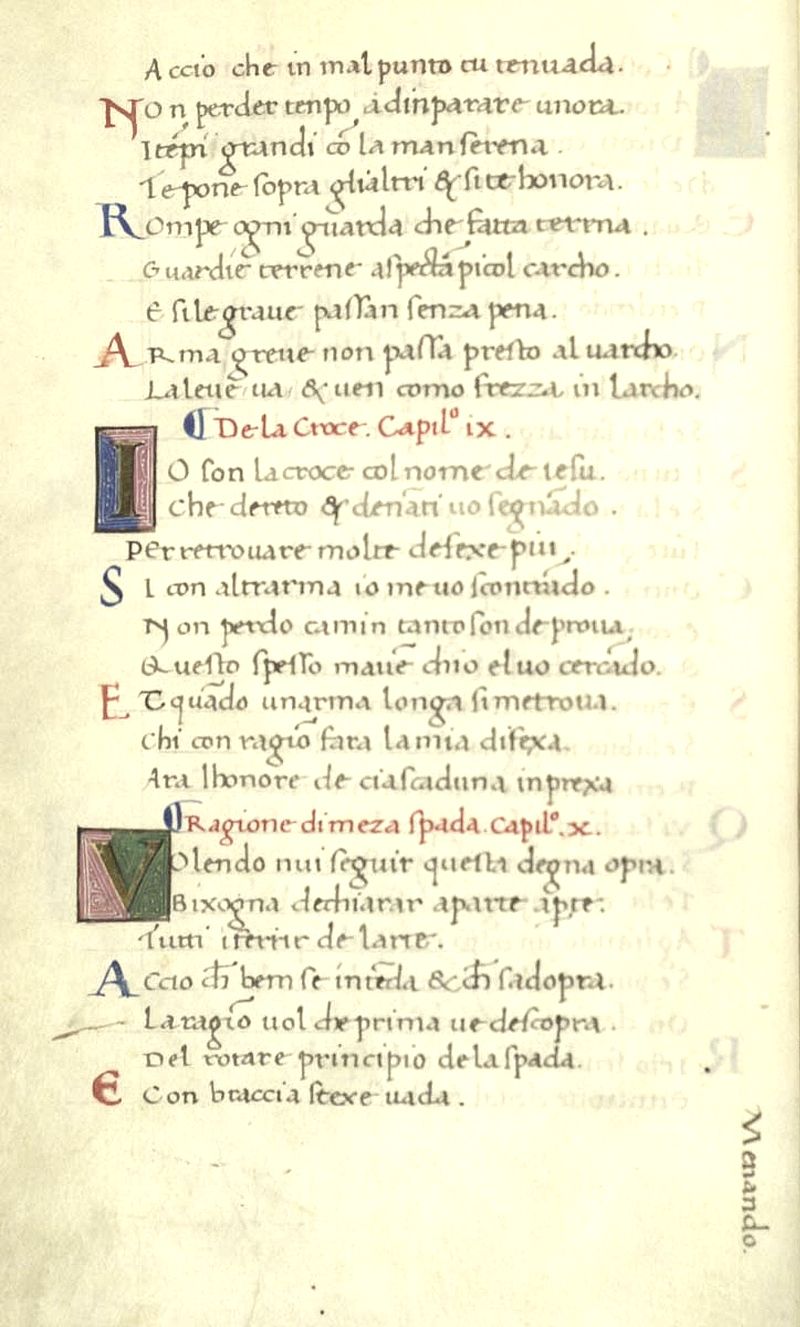 Accio che in mal punto tu tenuada.
Non perder tenpo adinparare unora.
I tēpi grandi cō la man serena.
Te pone sopra gliāltri & si te honora.
Rompe ogni guarda che fatta terrena.
Guardie terrene aspectā picol carcho.
E sile graue passan senza pena.
Arma greue non passa presto al uarcho.
Laleue ua & uen como frezza in larcho.
¶ De la Croce. Capil⁰ ix.
IO son la croce col nome de iesu.
Che dereto & denāti uo segnādo.
Per retrouare molte defexe piu.
SI con altrarma io me uo scontrādo.
Non perdo camin tanto son de proua,
Questo spesso mauē chio el uo cercādo.
ET quādo unarma longa si me troua.
Chi con ragiō fara la mia difexa.
Ara lhonore de ciascaduna inprexa
¶ Ragione di meza spada. Capil⁰. x.
VOlendo nui seguir questa degna opra.
Bixogna dechiarar aparte aprte.
Tutti i ferir de larte.
Accio ch̄ bem se intēda & ch̄ sadopra.
La ragiō uol che prima ue descopra.
Del rotare principio dela spada.
E Con braccia stexe uada.
Menando.